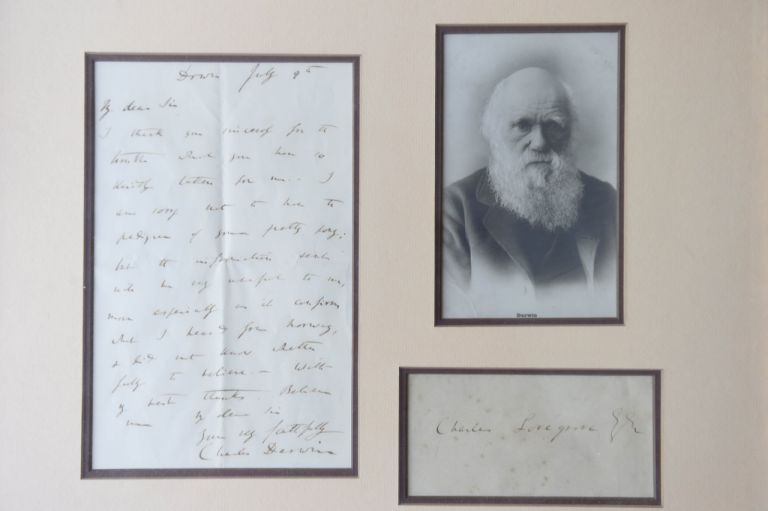 Down July 9th
My dear Sir
I thank you sincerely for the
trouble which you have so
kindly taken for me. – I
am sorry not to have the
pedigree of your pretty pony;
but the information sent
will be very useful to me,
more especially as it confirms
what I heard from Norway,
& did not know whether
fully to believe. – With
my best thanks. Believe
me My dear Sir
Yours very faithfully
Charles Darwin
Darwin
Charles Lovegrove Esq